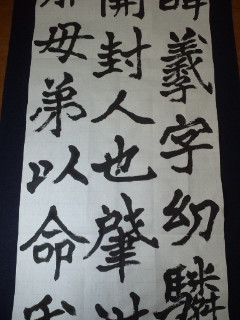 諱羲字幼驎
開封人也肇
母弟以命